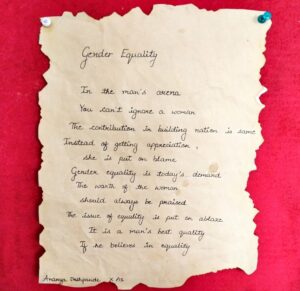 Gender Equality
In the man's arena
You can't ignore a woman
The contribution in building nation is same
Instead of getting appreciation,
she is put on blame
Gender equality is today's demand
The worth of the woman
should always be praised
The issue of equality is put on ablaze
It is a man's best quality
If he believes in equality
Ananya Deshpande X A2